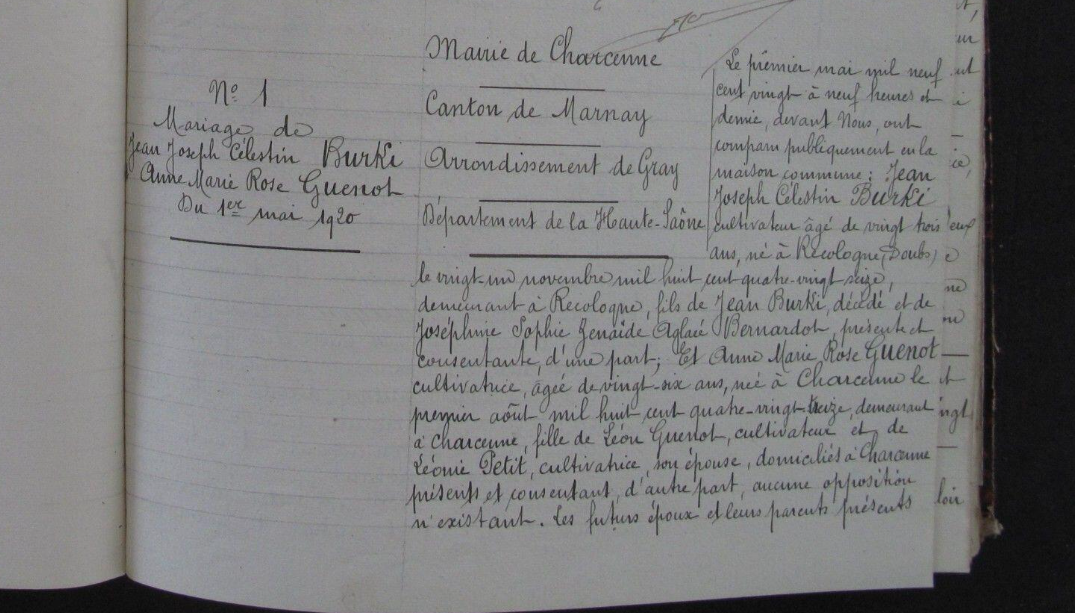 N° 1
Mariage de
Jean Joseph Célestin Burki
Anne Marie Rose Guenot
Du 1er mai 1920
Mairie de Charcenne
Canton de Marnay
Arrondissement de Gray
Département de la Haute-Saône
Le premier mai mil neuf
cent vingt à neuf heures et
demie, devant Nous, ont
comparu publiquement en la
maison commune : Jean
Joseph Célestin Burki
cultivateur âgé de vingt trois
ans, né à Recologne, (Doubs)
le vingt-un novembre mil huit cent quatre-vingt seize,
demeurant à Recologne, fils de Jean Burki, décédé et de
Joséphine Sophie Zénaïde Aglaé Bernardot, présente et
consentante, d'une part ; Et Anne Marie Rose Guenot
cultivatrice, âgée de vingt-six ans, née à Charcenne le
premier août mil huit cent quatre-vingt-treize, demeurant
à Charcenne, fille de Léon Guenot, cultivateur et de
Léonie Petit, cultivatrice, son épouse, domiciliés à Charcenne
présents et consentant, d'autre part, aucune opposition
n'existant. Les futurs époux et leurs parents présents